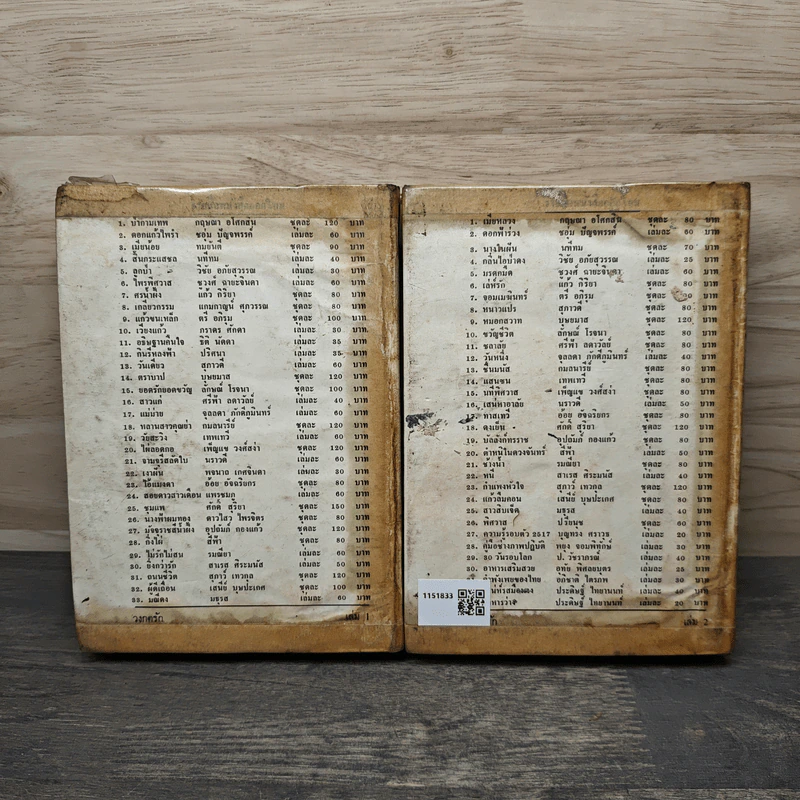 1. ป่ากามเทพ กฤษณา อโศกสิน ชุดละ 120 บาท
2. ดอกแก้วไพรำ ชอุ่ม ปัญจพรรค์ เล่มละ 60 บาท
3. เมียน้อย ทมยันตี ชุดละ 90 บาท
4. สิ้นกระแสชล นทีทม เล่มละ 40 บาท
5. ลูกบ้า วิชัย อภัยสุวรรณ เล่มละ 30 บาท
6. ไพรพิศวาส ชวงศ์ ฉายะจินดา เล่มละ 60 บาท
7. ศรน้ำผึ้ง แก้ว กิริยา ชุดละ 80 บาท
8. เกลียวกรรม แกมกาญจน์ ศุภวรรณ ชุดละ 80 บาท
9. แก้วจนเหลิก ตรี อภิรุม ชุดละ 100 บาท
10. เวียงแก้ว ภราดร ศักดา เล่มละ 30 บาท
11. อธิษฐานคืนใจ ธิติ นัดดา เล่มละ 35 บาท
12. กินรีหลงฟ้า ปริศนา เล่มละ 35 บาท
13. วันเดียว สุภาวดี เล่มละ 60 บาท
14. ตราบาป บุษยมาส ชุดละ 80 บาท
15. ยอดรักยอดขวัญ ลักษณ์ โรจนา ชุดละ 100 บาท
16. สาวแก่ ศรีฟ้า ลดาวัลย์ เล่มละ 40 บาท
17. แม่ม่าย จุลลดา ภักดีภูมินทร์ เล่มละ 60 บาท
18. หลานสาวคุณย่า กมลนารีย์ ชุดละ 120 บาท
19. วัยสะวิง เทพเทวี เล่มละ 60 บาท
20. ไผ่ลอดกอ เพ็ญแข วงศ์สง่า ชุดละ 120 บาท
21. จานจรัสลัดใบ นราวดี เล่มละ 60 บาท
22. เงาฝัน พจนาถ เกศจินดา เล่มละ 30 บาท
23. ไอ้แมงดา อ้อย อัจฉริยกร ชุดละ 80 บาท
24. สอยดาวสาวเดือน แพรชมภู เล่มละ 60 บาท
25. ขุมแพ ศักดิ์ สุริยา ชุดละ 150 บาท
26. นางฟ้าผมทอง ดาวใสว ไพรจิตร ชุดละ 80 บาท
27. มัจจุราชสีน้ำผึ้ง อุปถัมภ์ กองแก้ว ชุดละ 120 บาท
28. กิ่งไผ่ สีฟ้า ชุดละ 80 บาท
29. ไม้รักไม่สน รมณียา เล่มละ 60 บาท
30. ยิ่งกว่ารัก สาเรส ศิระมนัส เล่มละ 50 บาท
31. ถนนชีวิต สุภาว์ เทวกุล ชุดละ 120 บาท
32. ผู้ดีเถื่อน เสนีย์ บุษปะเกศ ชุดละ 100 บาท
33. มณีดง มธุรส เล่มละ 60 บาท
วงกตรัก เล่ม 1
1. เมียหลวง กฤษณา อโศกสิน ชุดละ 80 บาท
2. ดอกฟ้าร่วง ชอุ่ม ปัญจพรรค์ เล่มละ 60 บาท
3. นางในฝัน นทีทม ชุดละ 70 บาท
4. วิชัย อภัยสุวรรณ เล่มละ 25 บาท
5. มรดกมืด ชวงศ์ ฉายะจินดา เล่มละ 60 บาท
6. เล่ห์รัก แก้ว กิริยา ชุดละ 80 บาท
7. จอมเมฆินทร์ ตรี อภิรุม ชุดละ บาท
8. หนาวแปร สุภาวดี ชุดละ 80 บาท
9. หมอกสวาท บุษยมาส ชุดละ 120 บาท
10. ขวัญชีวิต ลักษณ์ โรจนา ชุดละ 80 บาท
11. ชลาลัย ศรีฟ้า ลดาวัลย์ ชุดละ 80 บาท
12. วันหนึ่ง จุลลดา ภักดีภูมินทร์ เล่มละ 40 บาท
13. ชื่นมนัส กมลนารีย์ ชุดละ 80 บาท
14. แสนซน เทพเทวี ชุดละ 80 บาท
15. บทพิศวาส เพ็ญแข วงศ์สง่า ชุดละ 80 บาท
16. เสน่หาอาลัย นราวดี เล่มละ 50 บาท
17. ทาสเทวี อ้อย อัจฉริยกร ชุดละ 80 บาท
18. ดงเย็น ศักดิ์ สุริยา ชุดละ 120 บาท
19. บัลลังก์ทรราช อุปถัมภ์ กองแก้ว ชุดละ 80 บาท
20. ตำหนิในดวงจันทร์ สีฟ้า เล่มละ 50 บาท
21. ช้างน้ำ รมณียา ชุดละ 80 บาท
22. หนี สาเรส ศิระมนัส เล่มละ 40 บาท
23. กำแพงหัวใจ สุภาว์ เทวกุล ชุดละ 120 บาท
24. แก้วลืมคอน เสนีย์ บุษปะเกศ ชุดละ 100 บาท
25. สาวสิบเจ็ด มธุรส เล่มละ 40 บาท
26. พิศวาส ปรียนุช เล่มละ 60 บาท
27. ความรู้รอบตัว 2517 บุญทวง ศราวุธ เล่มละ 20 บาท
28. คู่มือช่างภาพปฏิบัติ พยุง จอมพิทักษ์ เล่มละ 30 บาท
29. 30 วันรอบโลก ป. วัชราภรณ์ เล่มละ 40 บาท
30. อาหารเสริมสวย อุทัย พิศลยบุตร เล่มละ 30 บาท
อภิชาติ ไตรภพ เล่มละ 30 บาท
ประดิษฐ์ ไทยานนท์ เล่มละ 40 บาท
ประดิษฐ์ ไทยานนท์ เล่มละ 20 บาท
เล่ม 2
1151833